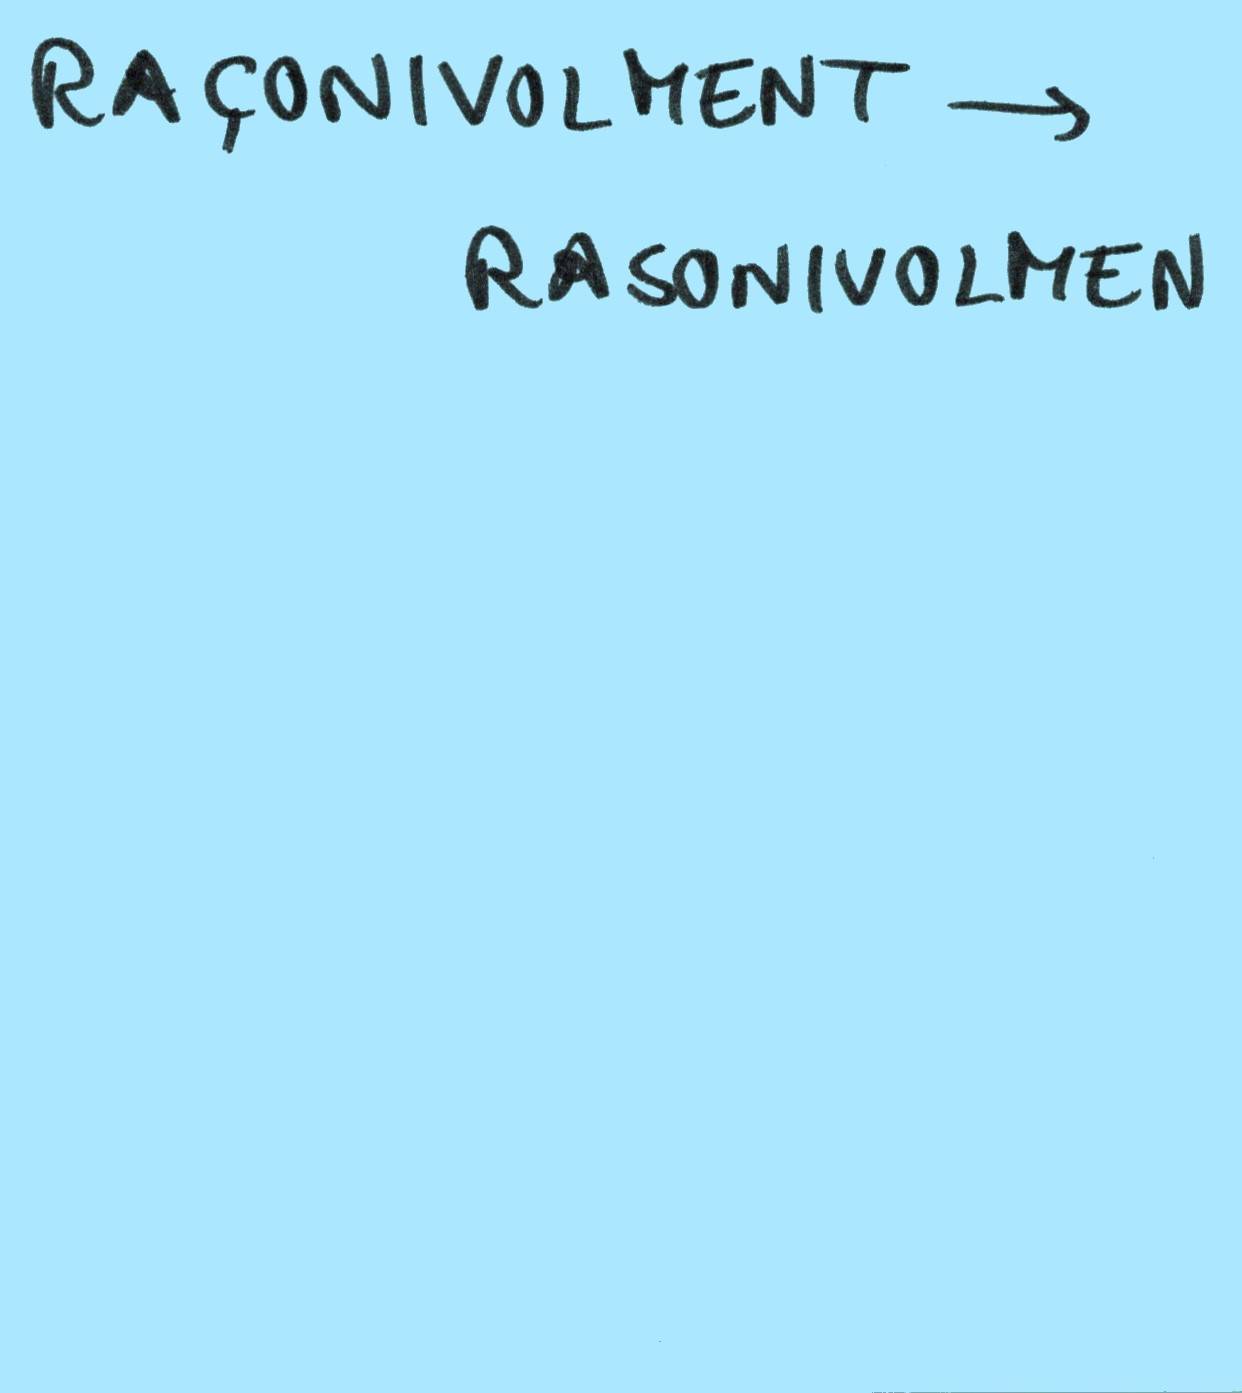 RAÇONIVOLMENT →
RASONIVOLMEN